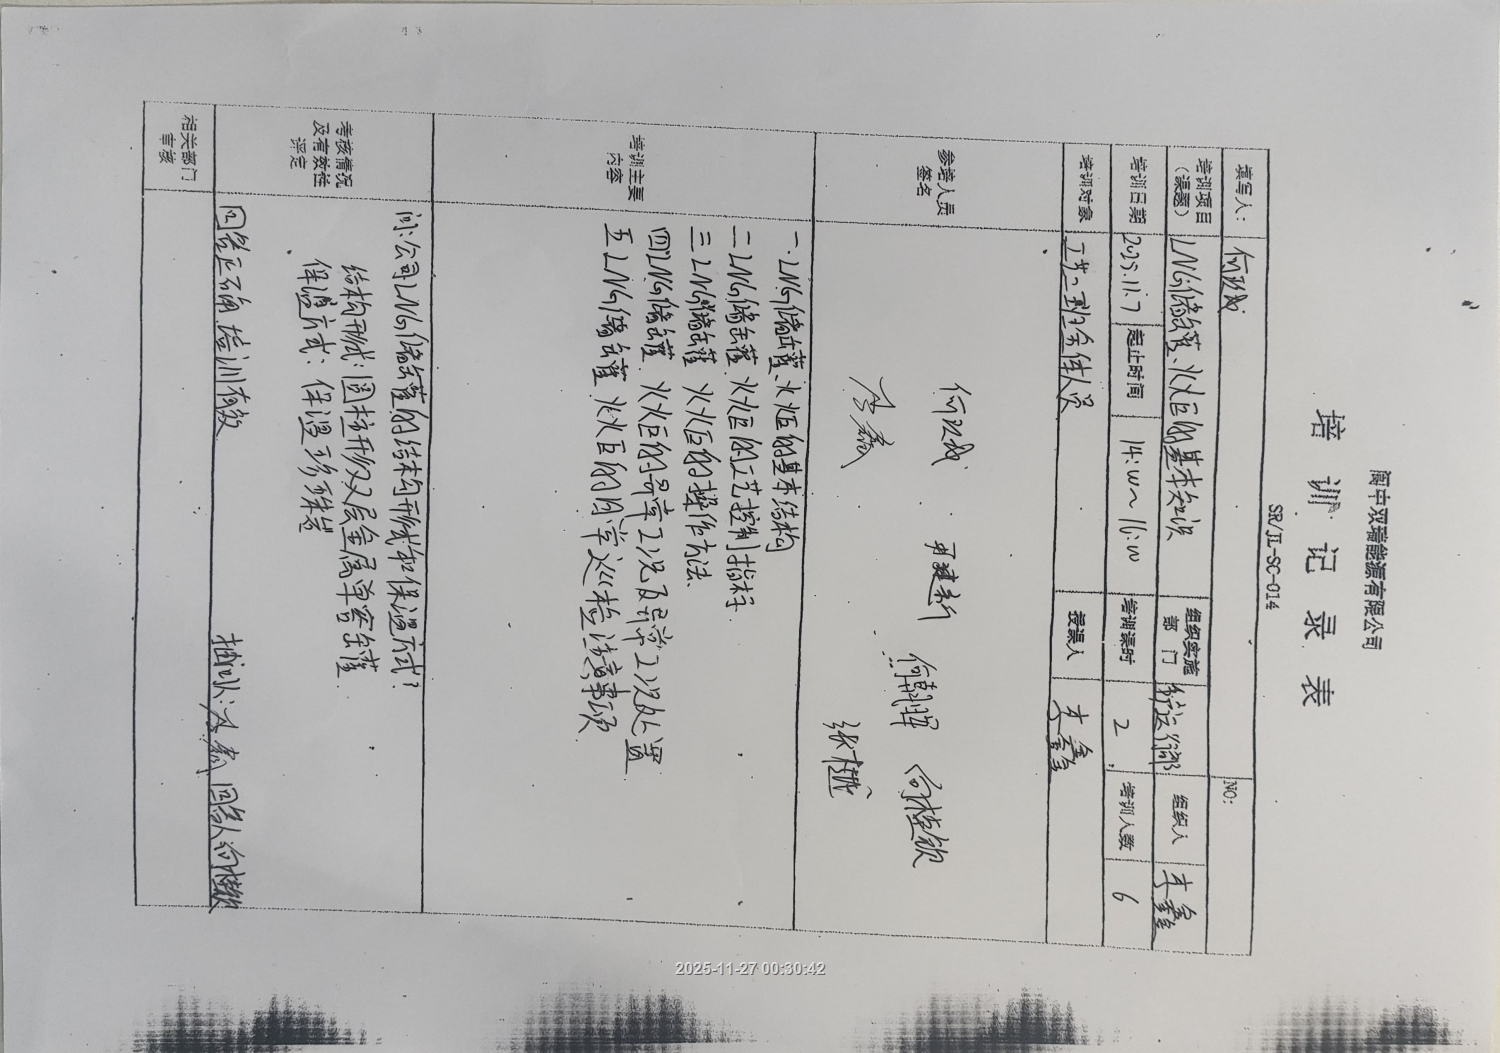 阆中双瑞能源有限公司
培训记录表
SR/JL-SC-014
填写人： 何玖成 NO:
培训项目（课题） LNG储罐、火炬的基本知识 组织实施部门 生产运行部 组织人 李鑫
培训日期 2025.11.7 起止时间 14:00~16:00 培训课时 2 培训人数 6
培训对象 工艺二班全体人员 授课人 李鑫
参培人员签名
何玖成 建新 何朝晖 向桂钦
李鑫 张桂
培训主要内容
一 LNG储罐、火炬的基本结构
二 LNG储罐、火炬的工艺控制指标
三 LNG储罐 火炬的操作方法
四 LNG储罐 火炬的异常工况及异常工况处置
五 LNG储罐 火炬的日常巡检注意事项
考核情况及有效性评定
问：公司LNG储罐的结构形式和保温方式？
结构形式：圆柱形双层金属单容罐
保温方式：保温珍珠岩
回答正确 培训有效
提问人：李鑫 回答人 向桂钦
相关部门审核
2025-11-27 00:30:42